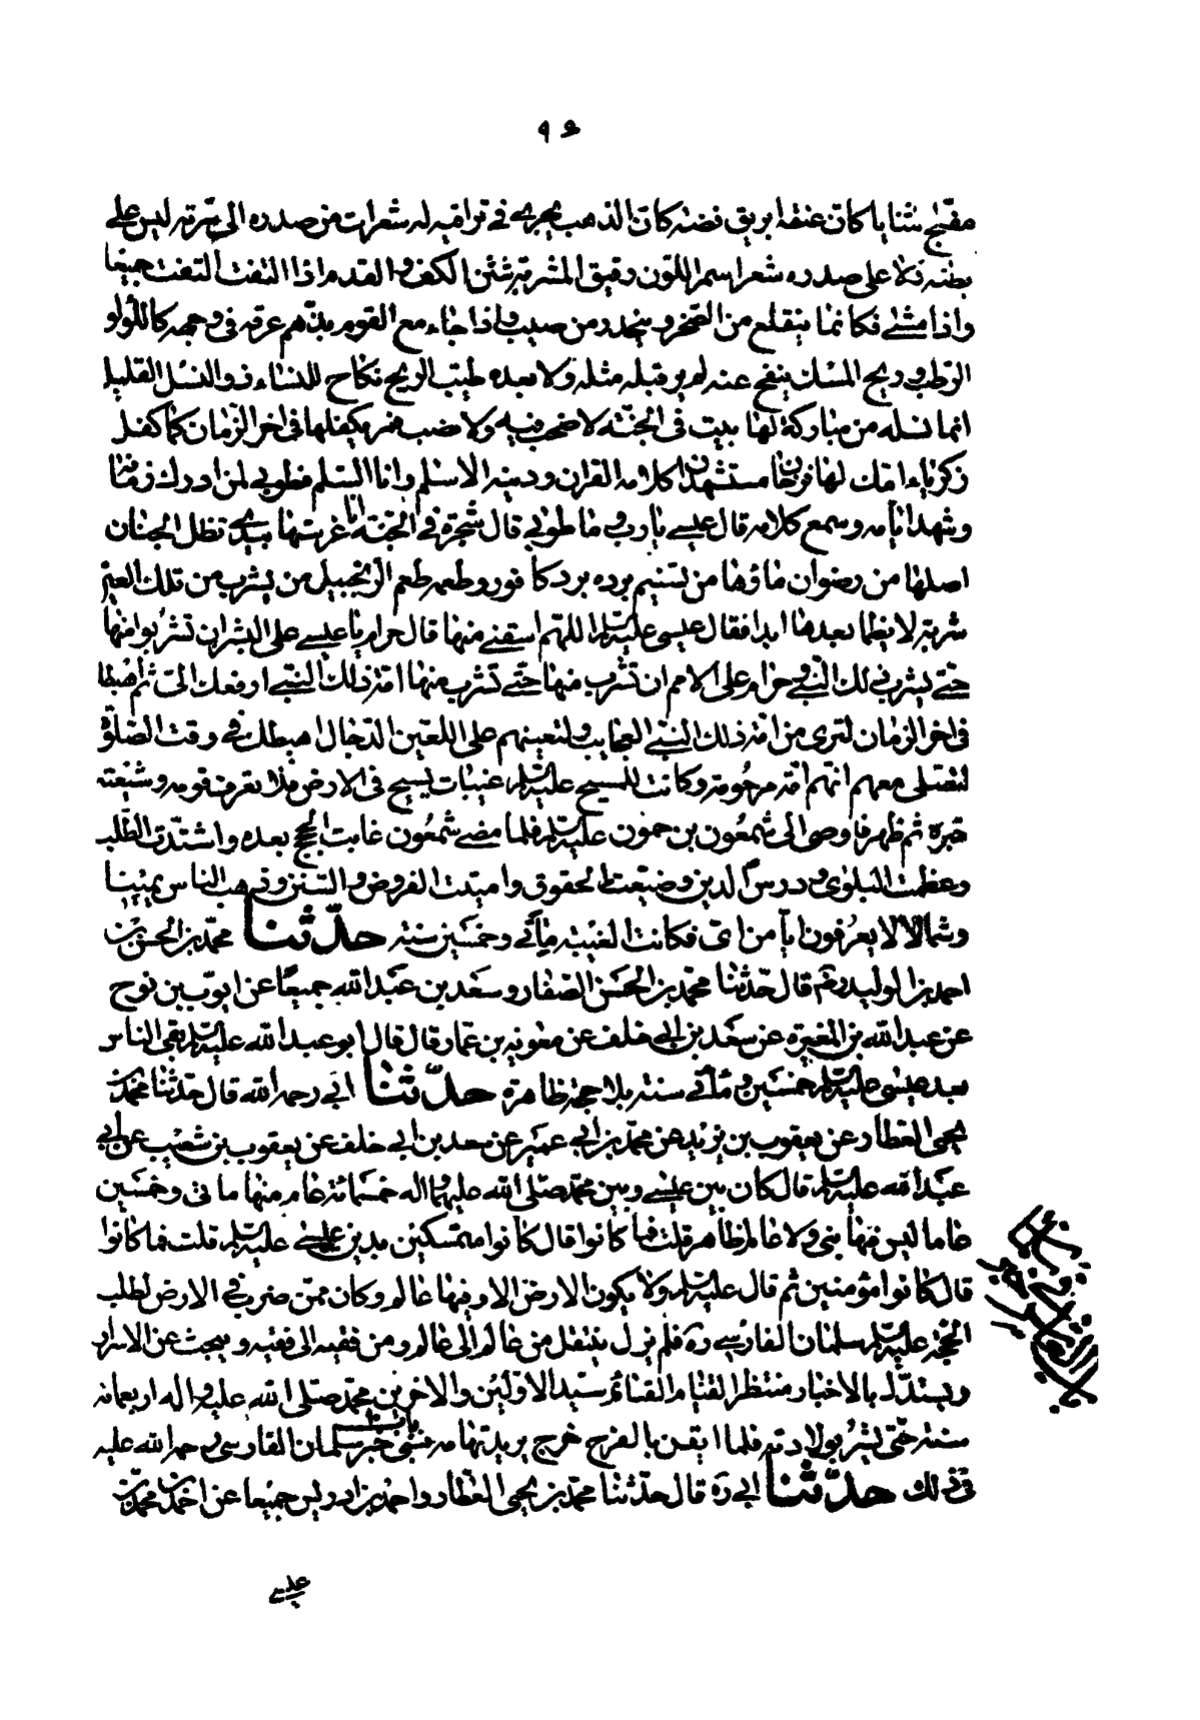 ٩٦
مفلج الثنايا كان عنقه ابريق فضة كان الذهب يجري في تراقيه له شعرات من صدره الى سرته ليس على
بطنه ولا على صدره شعر اسمر اللون دقيق المشربة شثن الكف والقدم اذا التفت التفت جميعا
واذا مشى فكانما يتقلع من الصخر وينحدر من صبب واذا جاء مع القوم بذهم عرقه في وجهه كاللؤلؤ
الرطب وريح المسك ينفح عنه لم ير قبله مثله ولا بعده طيب الريح نكاح للنساء ذو النسل القليل
انما نسله من مباركة لها بيت في الجنة لا صخب فيه ولا نصب يكفلها في اخر الزمان كما كفل
زكرياء امك لها فرخان مستشهدان كلامه القران ودينه الاسلم وانا السلم فطوبى لمن ادرك زمانه
وشهد ايامه وسمع كلامه قال عيسى يا رب وما طوبى قال شجرة في الجنة انا غرستها بيدي تظل الجنان
اصلها من رضوان ماؤها من تسنيم برده برد كافور وطعمه طعم الزنجبيل من يشرب من تلك العين
شربة لا يظما بعدها ابدا فقال عيسى عليه السلم اللهم اسقني منها قال حرام يا عيسى على البشر ان تشربوا منها
حتى يشرب ذلك النبي وحرام على الامم ان تشرب منها حتى تشرب منها امة ذلك النبي ارفعك الي ثم اهبطك
في اخر الزمان لترى من امة ذلك النبي العجايب ولتعينهم على اللعين الدجال اهبطك في وقت الصلوة
لتصلي معهم انهم امة مرحومة وكانت للمسيح عليه السلم غيبات يسيح في الارض فلا يعرف قومه وشيعته
خبره ثم ظهر فاوصى الى شمعون بن حمون عليه السلم فلما مضى شمعون غابت الحجج بعده واشتدت الطلب
وعظمت البلوى ودرس الدين وضيعت الحقوق واميتت الفروض والسنن وذهب الناس يمينا
وشمالا لا يعرفون ايا من اي فكانت الغيبة مأتي وخمسين سنة حدثنا محمد بن الحسن بن
احمد بن الوليد رضي قال حدثنا محمد بن الحسن الصفار وسعد بن عبد الله جميعا عن ايوب بن نوح
عن عبد الله بن المغيرة عن سعد بن ابي خلف عن معوية بن عمار قال قال ابو عبد الله عليه السلم بقي الناس
بعد عيسى عليه السلم خمسين ومأتي سنة بلا حجة ظاهرة حدثنا ابي رحمه الله قال حدثنا محمد بن
يحيى العطار عن يعقوب بن يزيد عن محمد بن ابي عمير عن سعد بن ابي خلف عن يعقوب بن شعيب عن ابي
عبد الله عليه السلم قال كان بين عيسى وبين محمد صلى الله عليهما واله خمسمائة عام منها مائتي وخمسين
عاما ليس فيها نبي ولا عالم ظاهر قلت فما كانوا قال كانوا متمسكين بدين عيسى عليه السلم قلت فما كانوا
قال كانوا مؤمنين ثم قال عليه السلم ولا يكون الارض الا وفيها عالم وكان ممن ضرب في الارض لطلب
الحجة عليه السلم سلمان الفارسي ره فلم يزل ينتقل من عالم الى عالم ومن فقيه الى فقيه ويبحث عن الاسرار
ويستدل بالاخبار منتظرا لقيام القائم سيد الاولين والاخرين محمد صلى الله عليه واله اربعمائة
سنة حتى بشر بولادته فلما ايقن بالفرج خرج يريد تهامة فسبي باب خبر سلمان الفارسي رحمه الله عليه
في ذلك حدثنا ابي ره قال حدثنا محمد بن يحيى العطار واحمد بن ادريس جميعا عن احمد بن محمد بن
عيسى